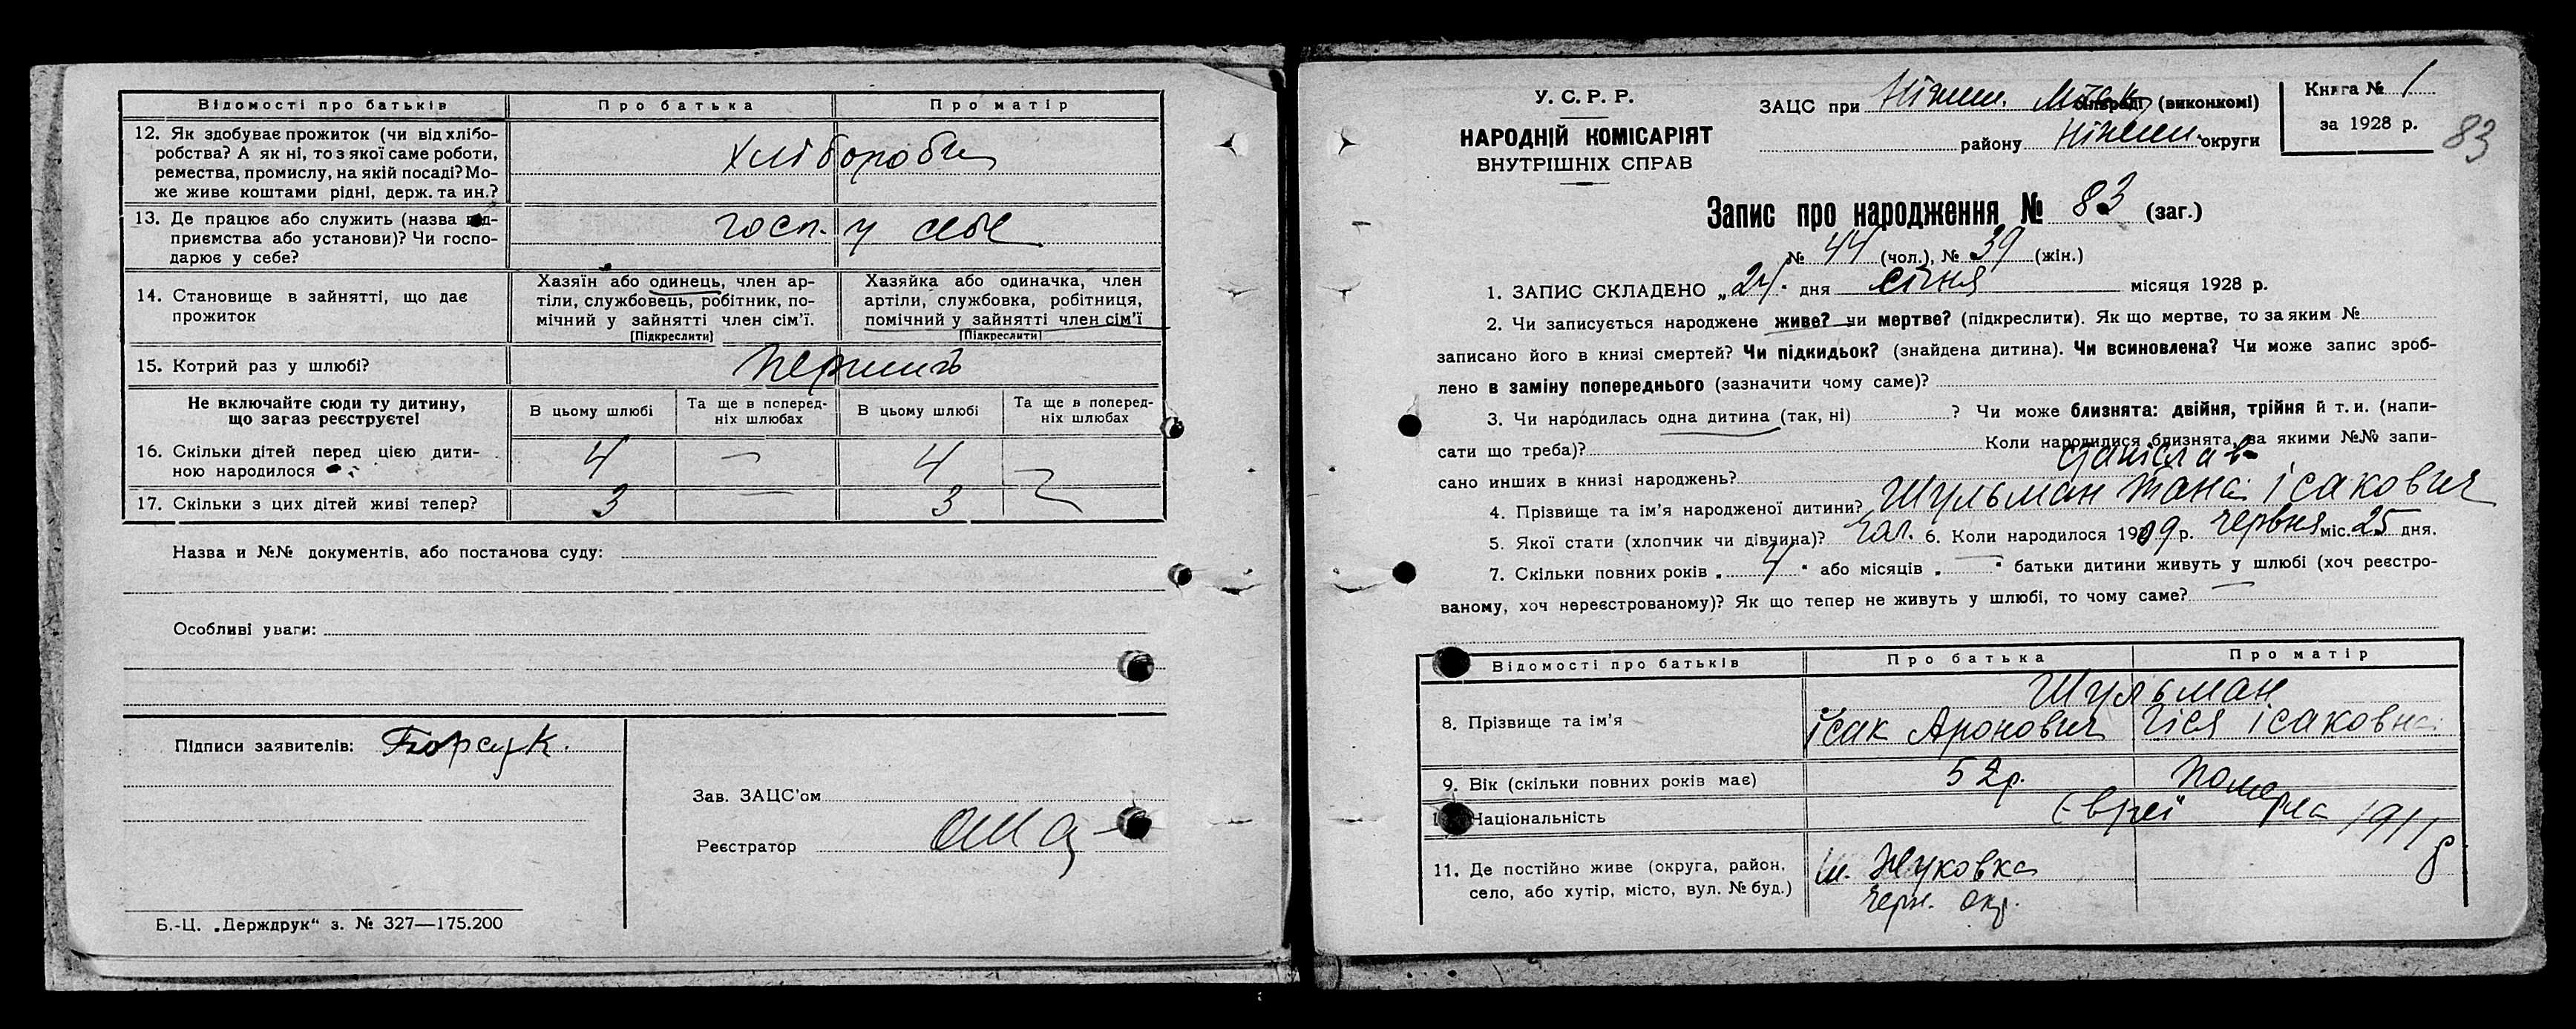 Відомості про батьків Про батька Про матір
12. Як здобуває прожиток (чи від хлібо-
робства? А як ні, то з якої саме роботи,
ремества, промислу, на якій посаді? Мо-
же живе коштами рідні, держ. та ин.?
хлібороби
13. Де працює або служить (назва під-
приємства або установи)? Чи госпо-
дарює у себе?
госп. у себе
14. Становище в зайнятті, що дає
прожиток
Хазяїн або одинець, член ар-
тіли, службовець, робітник, по-
мічний у зайнятті член сім'ї.
[Підкреслити]
Хазяйка або одиначка, член
артіли, службовка, робітниця,
помічний у зайнятті член сім'ї
[Підкреслити]
15. Котрий раз у шлюбі?
Не включайте сюди ту дитину,
що загаз реєструєте!
В цьому шлюбі
Та ще в поперед-
ніх шлюбах
В цьому шлюбі
Та ще в поперед-
ніх шлюбах
16. Скільки дітей перед цією дити-
ною народилося
4 — 4
17. Скільки з цих дітей живі тепер? 3 — 3
Назва и №№ документів, або постанова суду:
Особливі уваги:
Підписи заявителів:
Зав. ЗАЦС'ом
Реєстратор
Б.-Ц. „Держдрук" з. № 327—175.200
У. С. Р. Р.
НАРОДНІЙ КОМІСАРІЯТ
ВНУТРІШНІХ СПРАВ
ЗАЦС при Ніжин. (виконкомі)
району Ніжин. округи
Книга № 1
за 1928 р.
83
Запис про народження № 83 (заг.)
№ 44 (чол.), № 39 (жін.)
1. ЗАПИС СКЛАДЕНО „24" дня січня місяця 1928 р.
2. Чи записується народжене живе? чи мертве? (підкреслити). Як що мертве, то за яким №
записано його в книзі смертей? Чи підкидьок? (знайдена дитина). Чи всиновлена? Чи може запис зроб-
лено в заміну попереднього (зазначити чому саме)?
3. Чи народилась одна дитина (так, ні) ? Чи може близнята: двійня, трійня й т. и. (напи-
сати що треба)? Коли народилися близнята, за якими №№ запи-
сано инших в книзі народжень?
Станіслав
4. Прізвище та ім'я народженої дитини? Шульман Ісакович
5. Якої стати (хлопчик чи дівчина)? чол. 6. Коли народилося 1909 р. червня міс. 25 дня.
7. Скільки повних років „ 4 " або місяців „ — " батьки дитини живуть у шлюбі (хоч реєстро-
ваному, хоч нереєстрованому)? Як що тепер не живуть у шлюбі, то чому саме? —
Відомості про батьків Про батька Про матір
8. Прізвище та ім'я
Шульман
Ісак Аронович Гіся Ісаковна
9. Вік (скільки повних років має) 52р. Померла 1918
Національність Євреї
11. Де постійно живе (округа, район,
село, або хутір, місто, вул. № буд.)
м. Жуковка
Черн. окр.